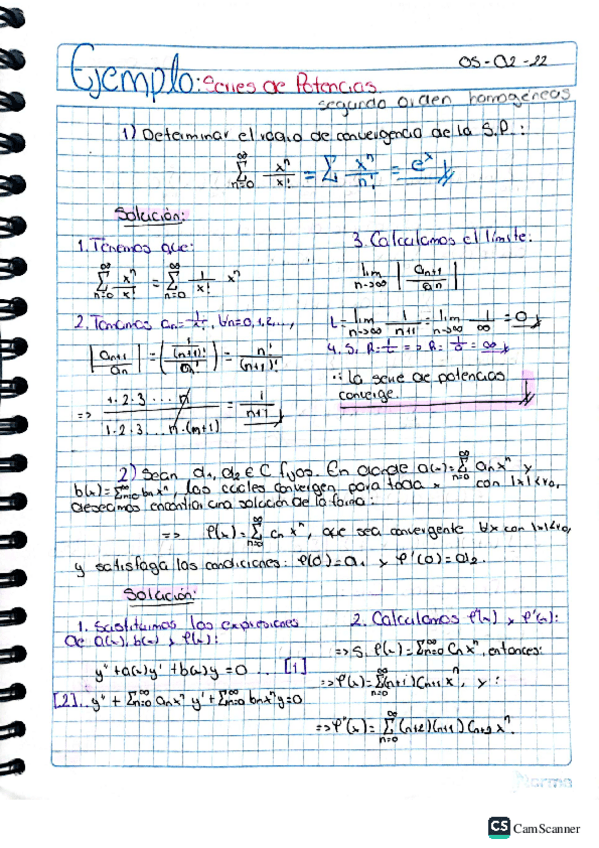 05-02-22
Ejemplo: Series de Potencias.
segundo orden homogéneas
1) Determinar el radio de convergencia de la S.P.:
∞∑n=0 xⁿ/x! = ∑ xⁿ/n! = eˣ
Solución:
1. Tenemos que:
∞∑n=0 xⁿ/x! = ∞∑n=0 1/x! xⁿ
2. Tenemos an = 1/x!, ∀n=0,1,2,...,
|an+1/an| = (1/(n+1)!/n!) = n!/(n+1)!
=> 1·2·3...n/1·2·3...n·(n+1) = 1/n+1
3. Calculamos el límite:
lim n→∞ |an+1/an|
L = lim n→∞ 1/n+1 = lim n→∞ 1/∞ = 0
4. S. R = 1/L => R = 1/0 = ∞
∴ la serie de potencias
converge.
2) Sean α1, α2 ∈ C fijos. En donde a(x) = ∞∑n=0 anxⁿ y
b(x) = ∑∞n=0 bnxⁿ, las cuales convergen para toda x con |x|<r0,
deseamos encontrar una solución de la forma:
=> φ(x) = ∞∑n=0 cnxⁿ, que sea convergente ∀x con |x|<r0,
y satisfaga las condiciones: φ(0)=α1 y φ'(0)=α2.
Solución:
1. Sustituimos las expresiones
de a(x), b(x) y φ(x):
y'' + a(x)y' + b(x)y = 0 ... [1]
[2].. y'' + ∑∞n=0 anxⁿ y' + ∑∞n=0 bnxⁿy=0
2. Calculamos φ'(x) y φ''(x):
=> S. φ(x) = ∑∞n=0 Cnxⁿ, entonces:
=> φ'(x) = ∞∑n=0 (n+1)Cn+1xⁿ, y:
=> φ''(x) = ∞∑n=0 (n+2)(n+1)Cn+2xⁿ.
Norma
CS CamScanner